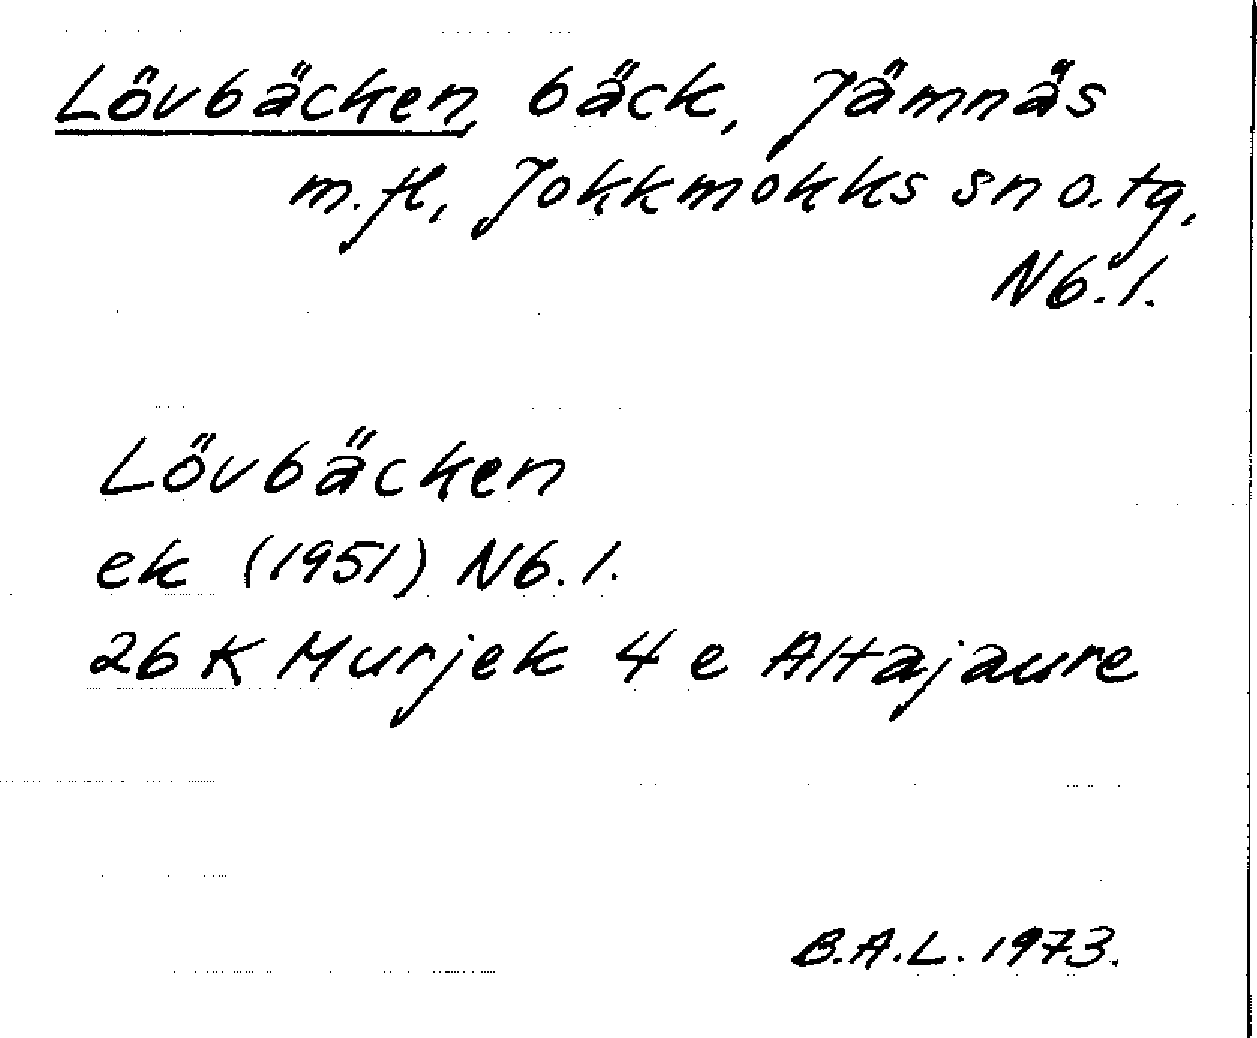 Lövbäcken, bäck, Jämnäs
m.fl, Jokkmokks sn o. tg,
Nb.l.
Lövbäcken
ek (1951) Nb.l.
26 K Murjek 4 e Altajaure
B.A.L. 1973.